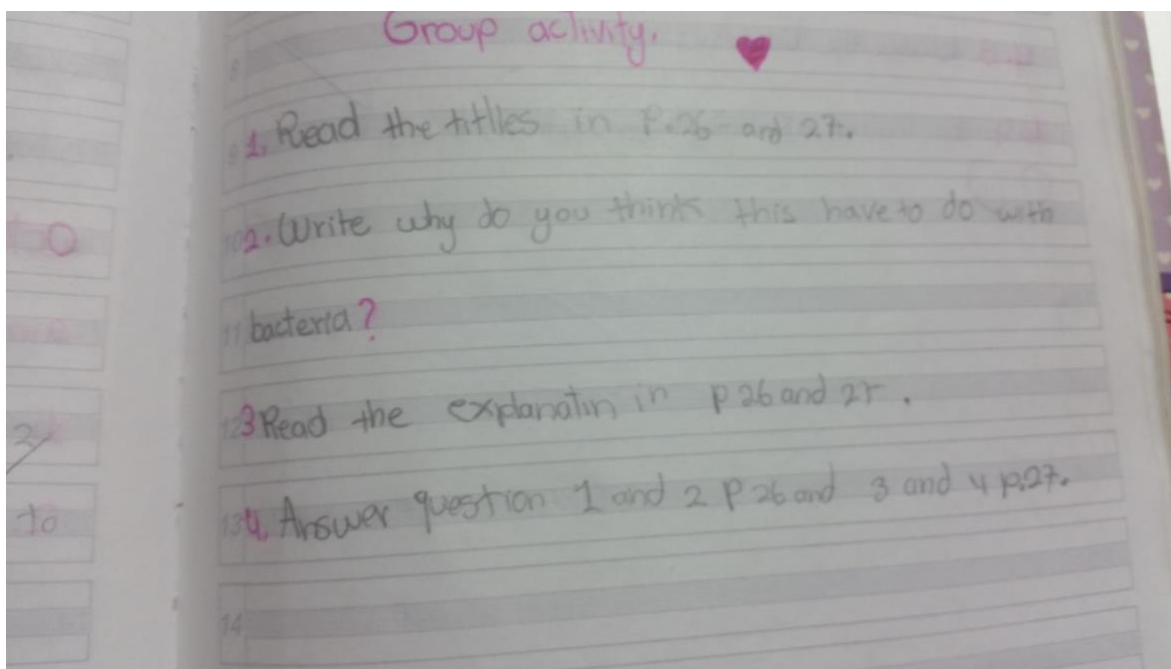 Group activity.
1. Read the titlles in P.26 and 27.
2. Write why do you think this have to do with
bacteria?
3 Read the explanatin in p 26 and 27.
4. Answer question 1 and 2 P 26 and 3 and 4 p.27.
to